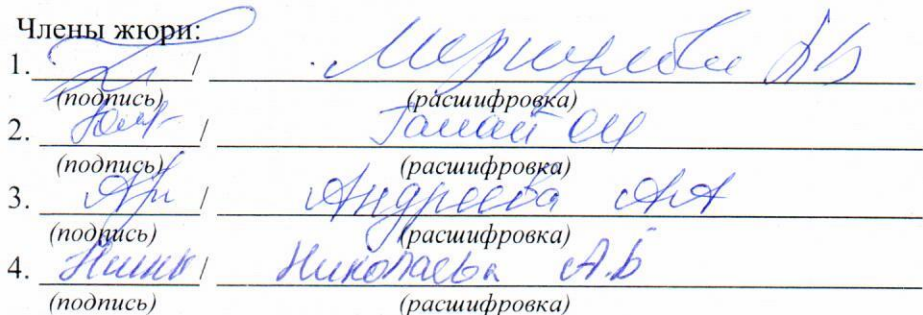 Члены жюри:
1. / Меркулова АВ
(подпись) (расшифровка)
2. / Гамай ОЧ
(подпись) (расшифровка)
3. / Андреева АА
(подпись) (расшифровка)
4. / Николаева А.В
(подпись) (расшифровка)